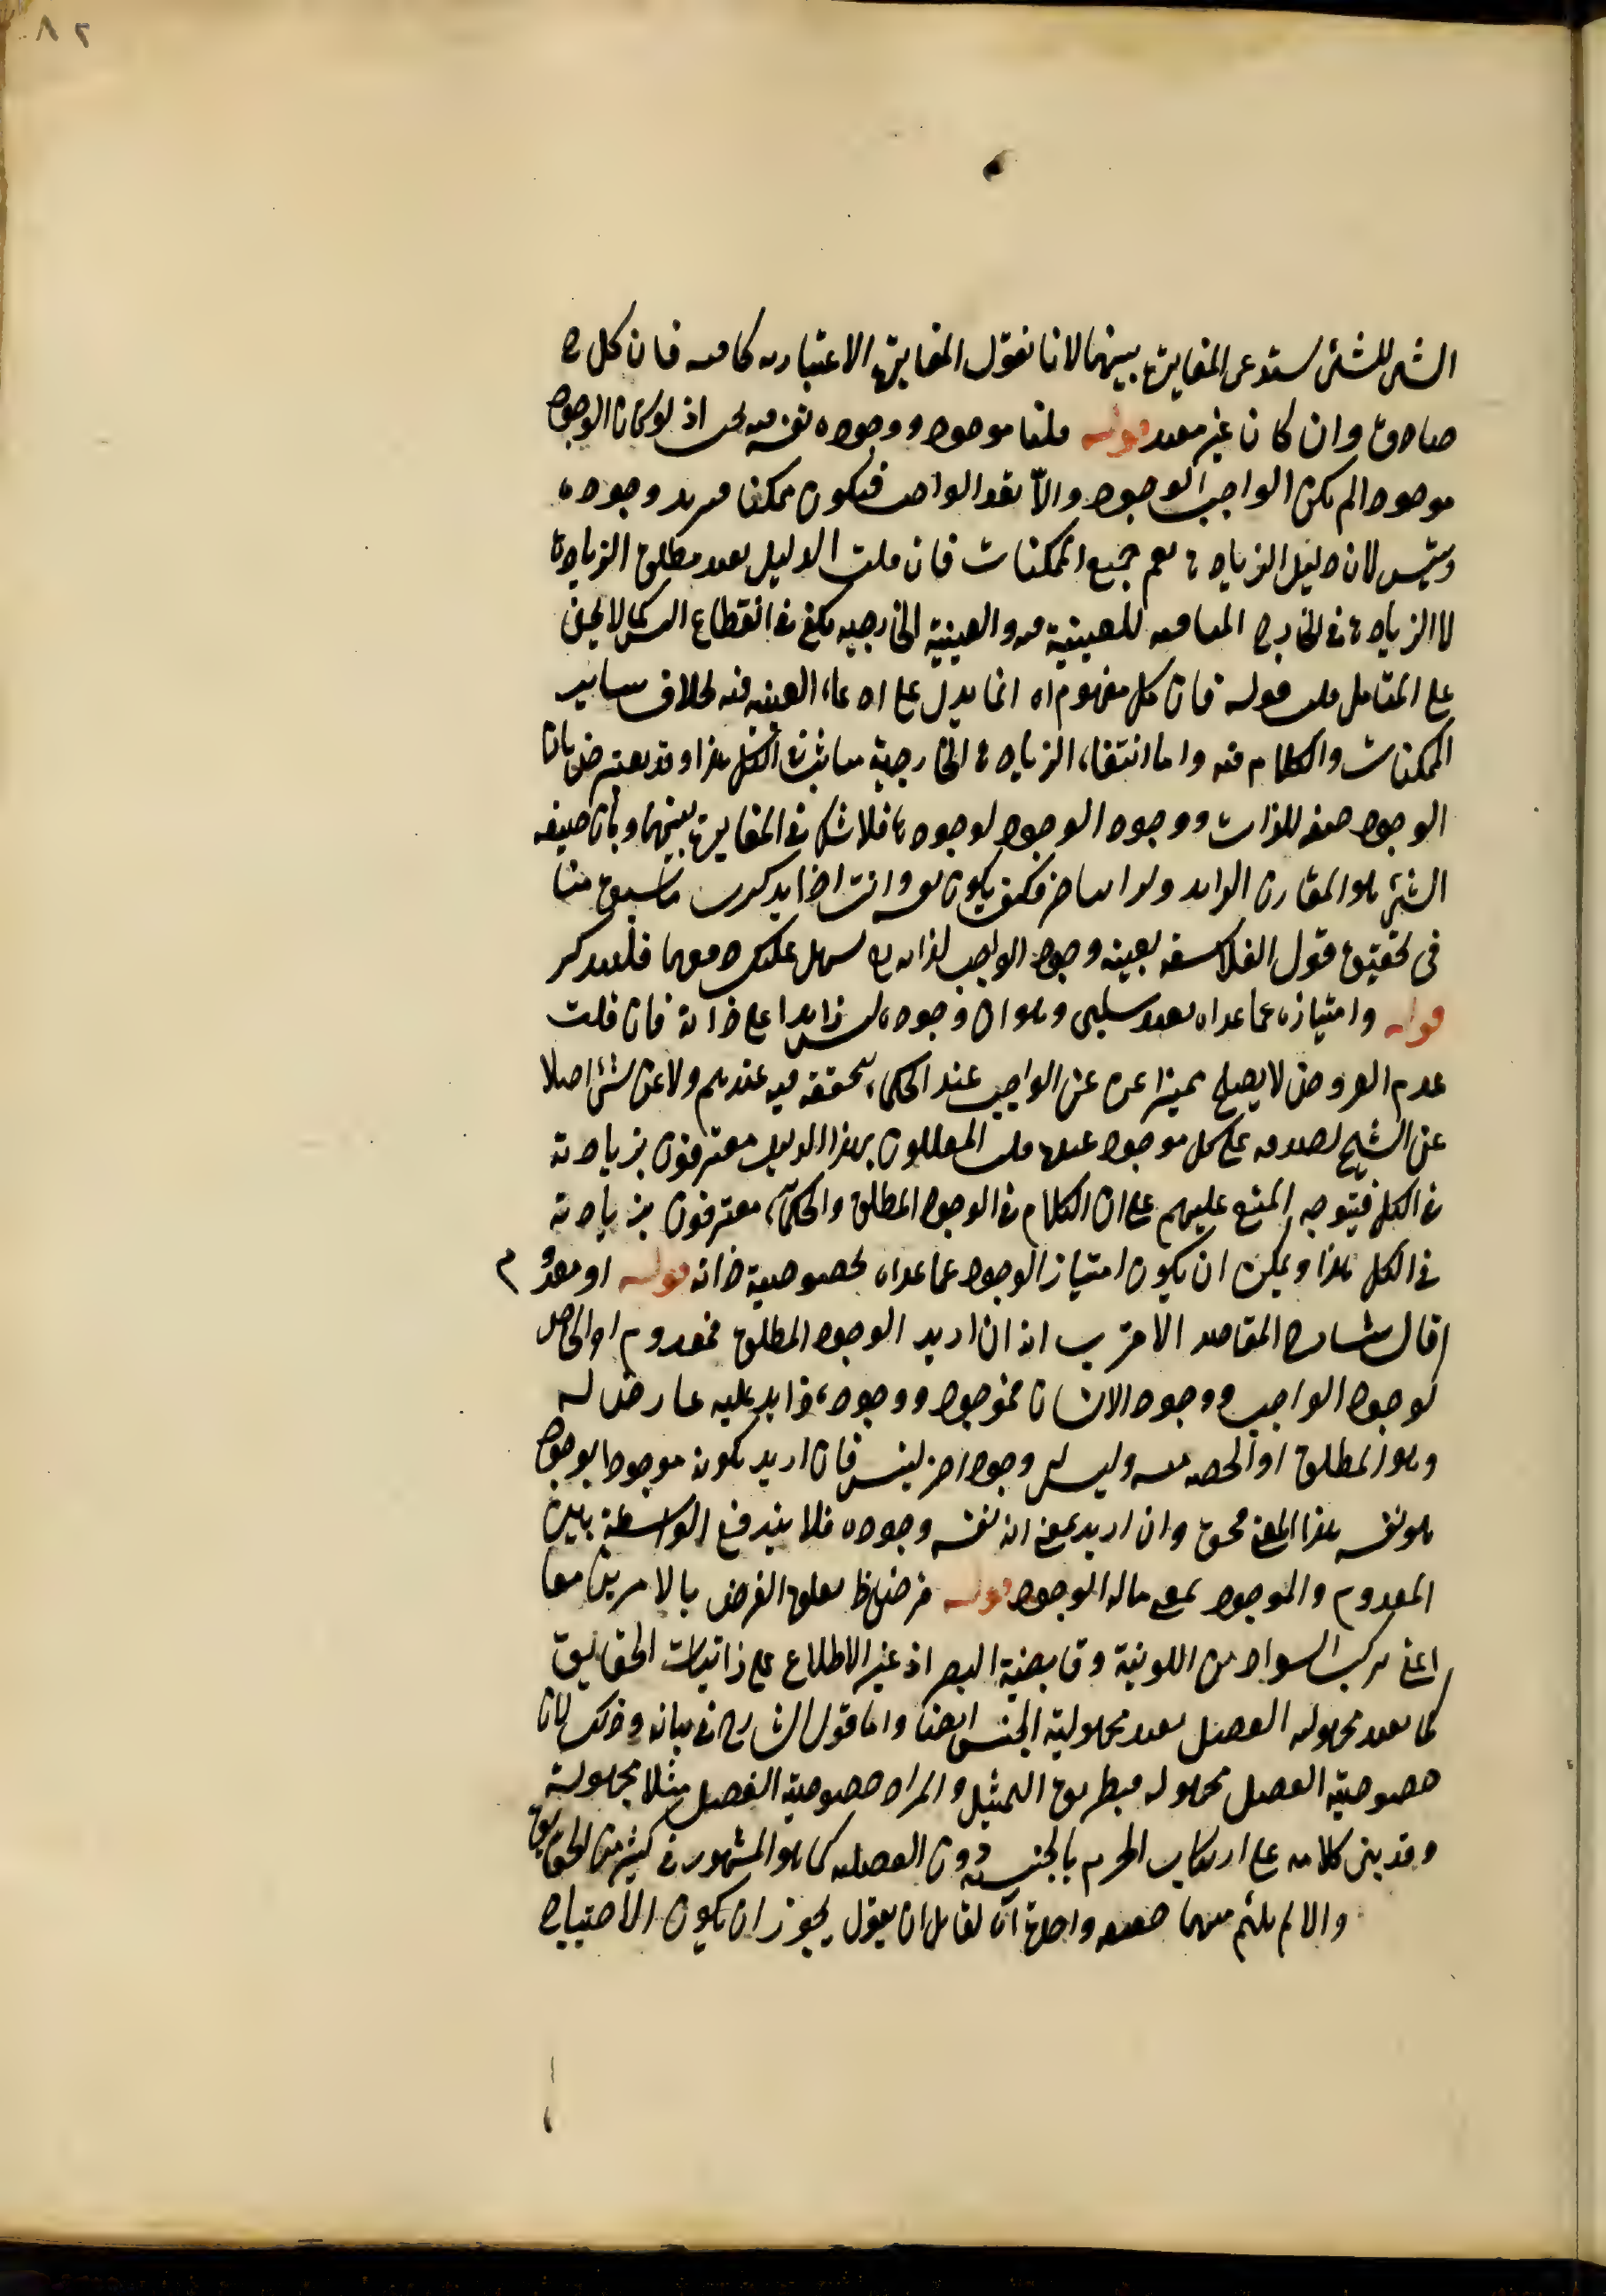 ٨٢
الشئ للشئ يستدعى المغايرة بينهما لانا نقول المغايرة الاعتبارية كافية فان كل
صادق وان كان غير مفيد قوله قلنا موجود ووجوده نفسه اذ لو كان الوجود
موجودا لم يكن الواجب الوجود والا تعدد الواجب فيكون ممكنا فيزيد وجوده
ويتسلسل لان دليل الزيادة يعم جميع الممكنات فان قلت الدليل يفيد مطلق الزيادة
لا الزيادة فى الخارج المنافية للعينية فيه والعينية الخارجية يكفى فى انقطاع التس كما لا يخفى
على المتأمل قلت قوله فان كل مفهوم اه انما يدل على ادعاء العينية فيه بخلاف ساير
الممكنات والكلام فيه واما انتفاء الزيادة الخارجية فثابت فى الكل هذا وقد يعترض بان
الوجود صفة للذات ووجود الوجود لوجوده فلا شك فى المغايرة بينهما وبان صفة
الشئ هو المقارن الزايد فكيف يكون نفسه وانت اذا تذكرت ما سبق منا
فى تحقيق قول الفلاسفة بعينية وجود الواجب لذاته سهل عليك دفعهما فليتذكر
قوله وامتيازه عما عداه بقيد سلبى وهو ان وجوده ليس زايدا على ذاته فان قلت
عدم العروض لا يصلح مميزا عن الواجب عند الحكماء لتحققه فيه عندهم ولا عن شئ اصلا
عن الشيخ لصدقه على كل موجود عنده قلت المعللون بهذا الدليل معترفون بزيادته
فى الكل فيتوجه المنع عليهم على ان الكلام فى الوجود المطلق والحكماء معترفون بزيادته
فى الكل هذا ويمكن ان يكون امتياز الوجود عما عداه بخصوصية ذاته قوله او معدوم
قال شارح المقاصد الاقرب انه ان اريد الوجود المطلق فمعدوم او الخاص
كوجود الواجب ووجود الانسان فموجود ووجوده زايد عليه عارض له
وهو المطلق او الحصة منه وليس له وجود اخر ليتس فان اريد بكونه موجودا بوجود
هو نفسه هذا المعنى فحق وان اريد بمعنى انه نفسه وجوده فلا يندفع الواسطة بين
المعدوم والموجود بمعنى ماله الوجود قوله فرضا يعلق الفرض بالامرين معا
اعنى تركب السواد من اللونية وقابضية البصر اذ عسر الاطلاع على ذاتيات الحقايق
كما يفيد مجهولية الفصل يفيد مجهولية الجنس ايضا واما قول الشارح فى بيانه وذلك لان
خصوصية الفصل مجهولة فبطريق التمثيل والمراد خصوصية الفصل مثلا مجهولة
وقد بنى كلامه على ارتكاب الجزم بالجنس دون الفصلية كما هو المشهور فى كثير من الحقايق
والا لم يلتئم منهما حقيقة واحدة اه لقائل ان يقول يجوز ان يكون الاحتياج